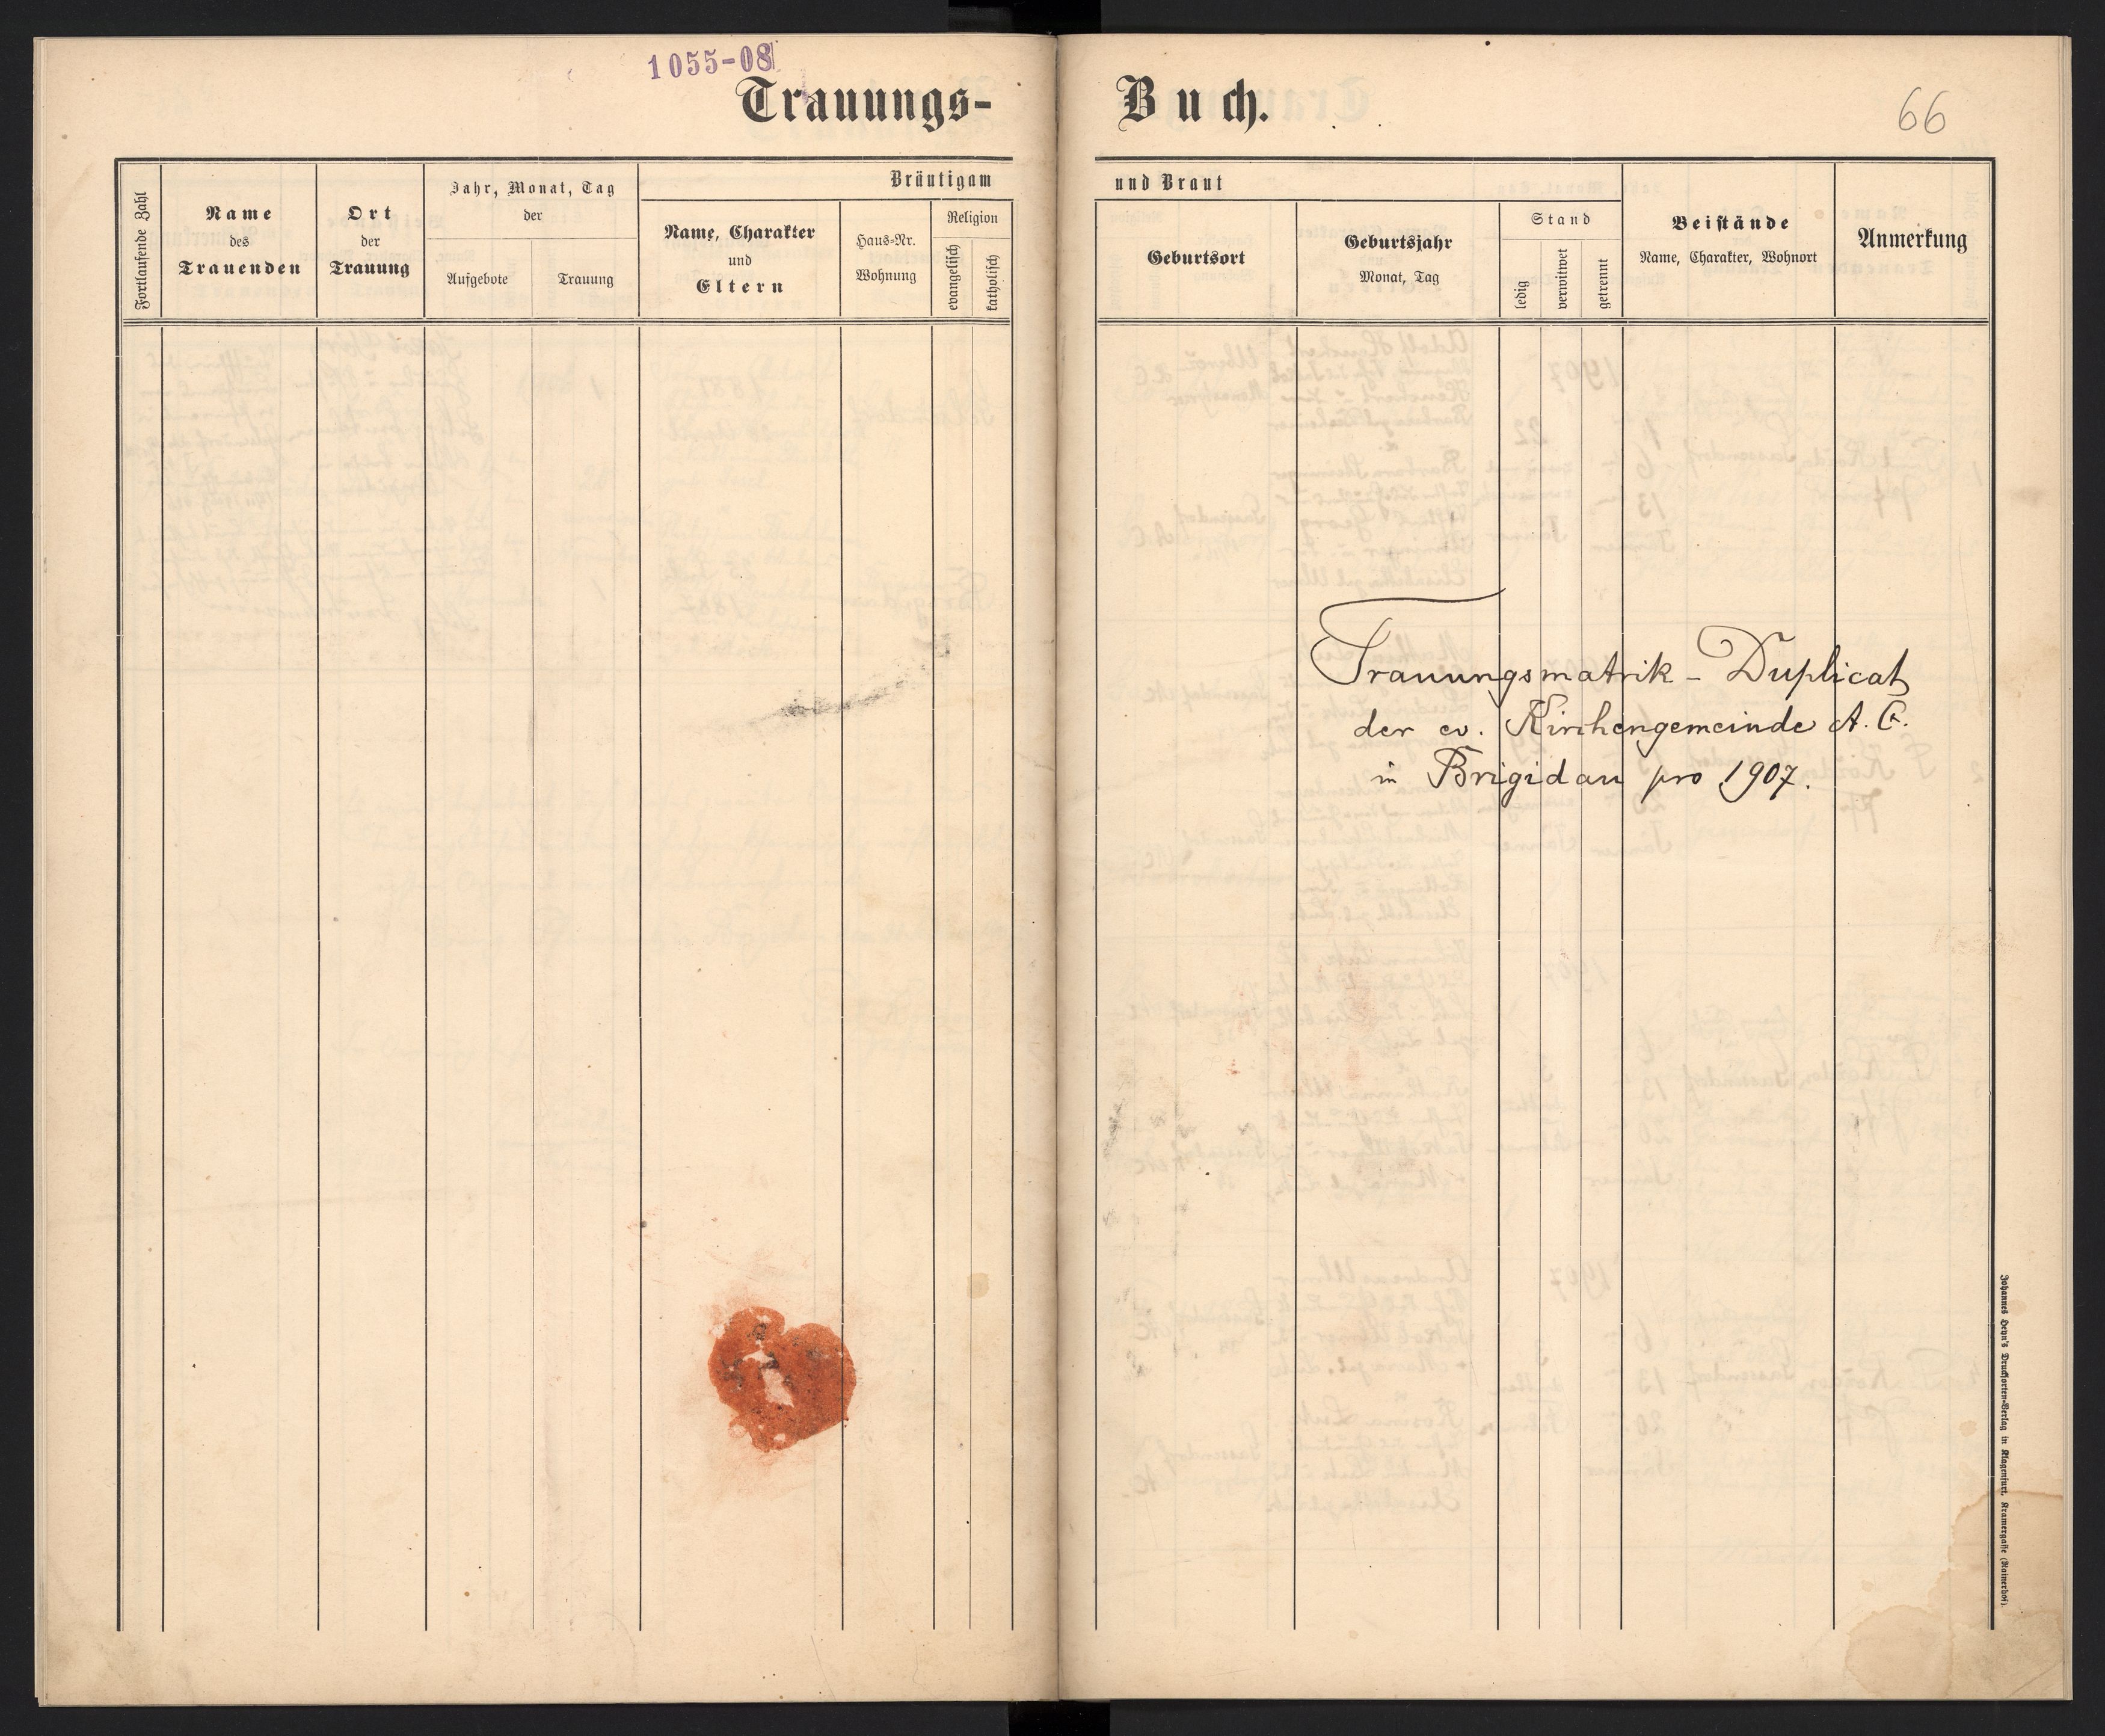 1055-08
Trauungs-
Buch.
66
Fortlaufende Zahl
Name
des
Trauenden
Ort
der
Trauung
Jahr, Monat, Tag
der
Aufgebote
Trauung
Bräutigam
Name, Charakter
und
Eltern
Haus-Nr.
Wohnung
Religion
evangelisch
katholisch
und Braut
Geburtsort
Geburtsjahr
Monat, Tag
Stand
ledig
verwitwet
getrennt
Beistände
Name, Charakter, Wohnort
Anmerkung
Trauungsmatrik - Duplicat
der ev. Kirchengemeinde A. C.
in Brigidau pro 1907.
Johannes Heyn's Drucksorten-Verlag in Klagenfurt, Kramergasse (Rainerhof).